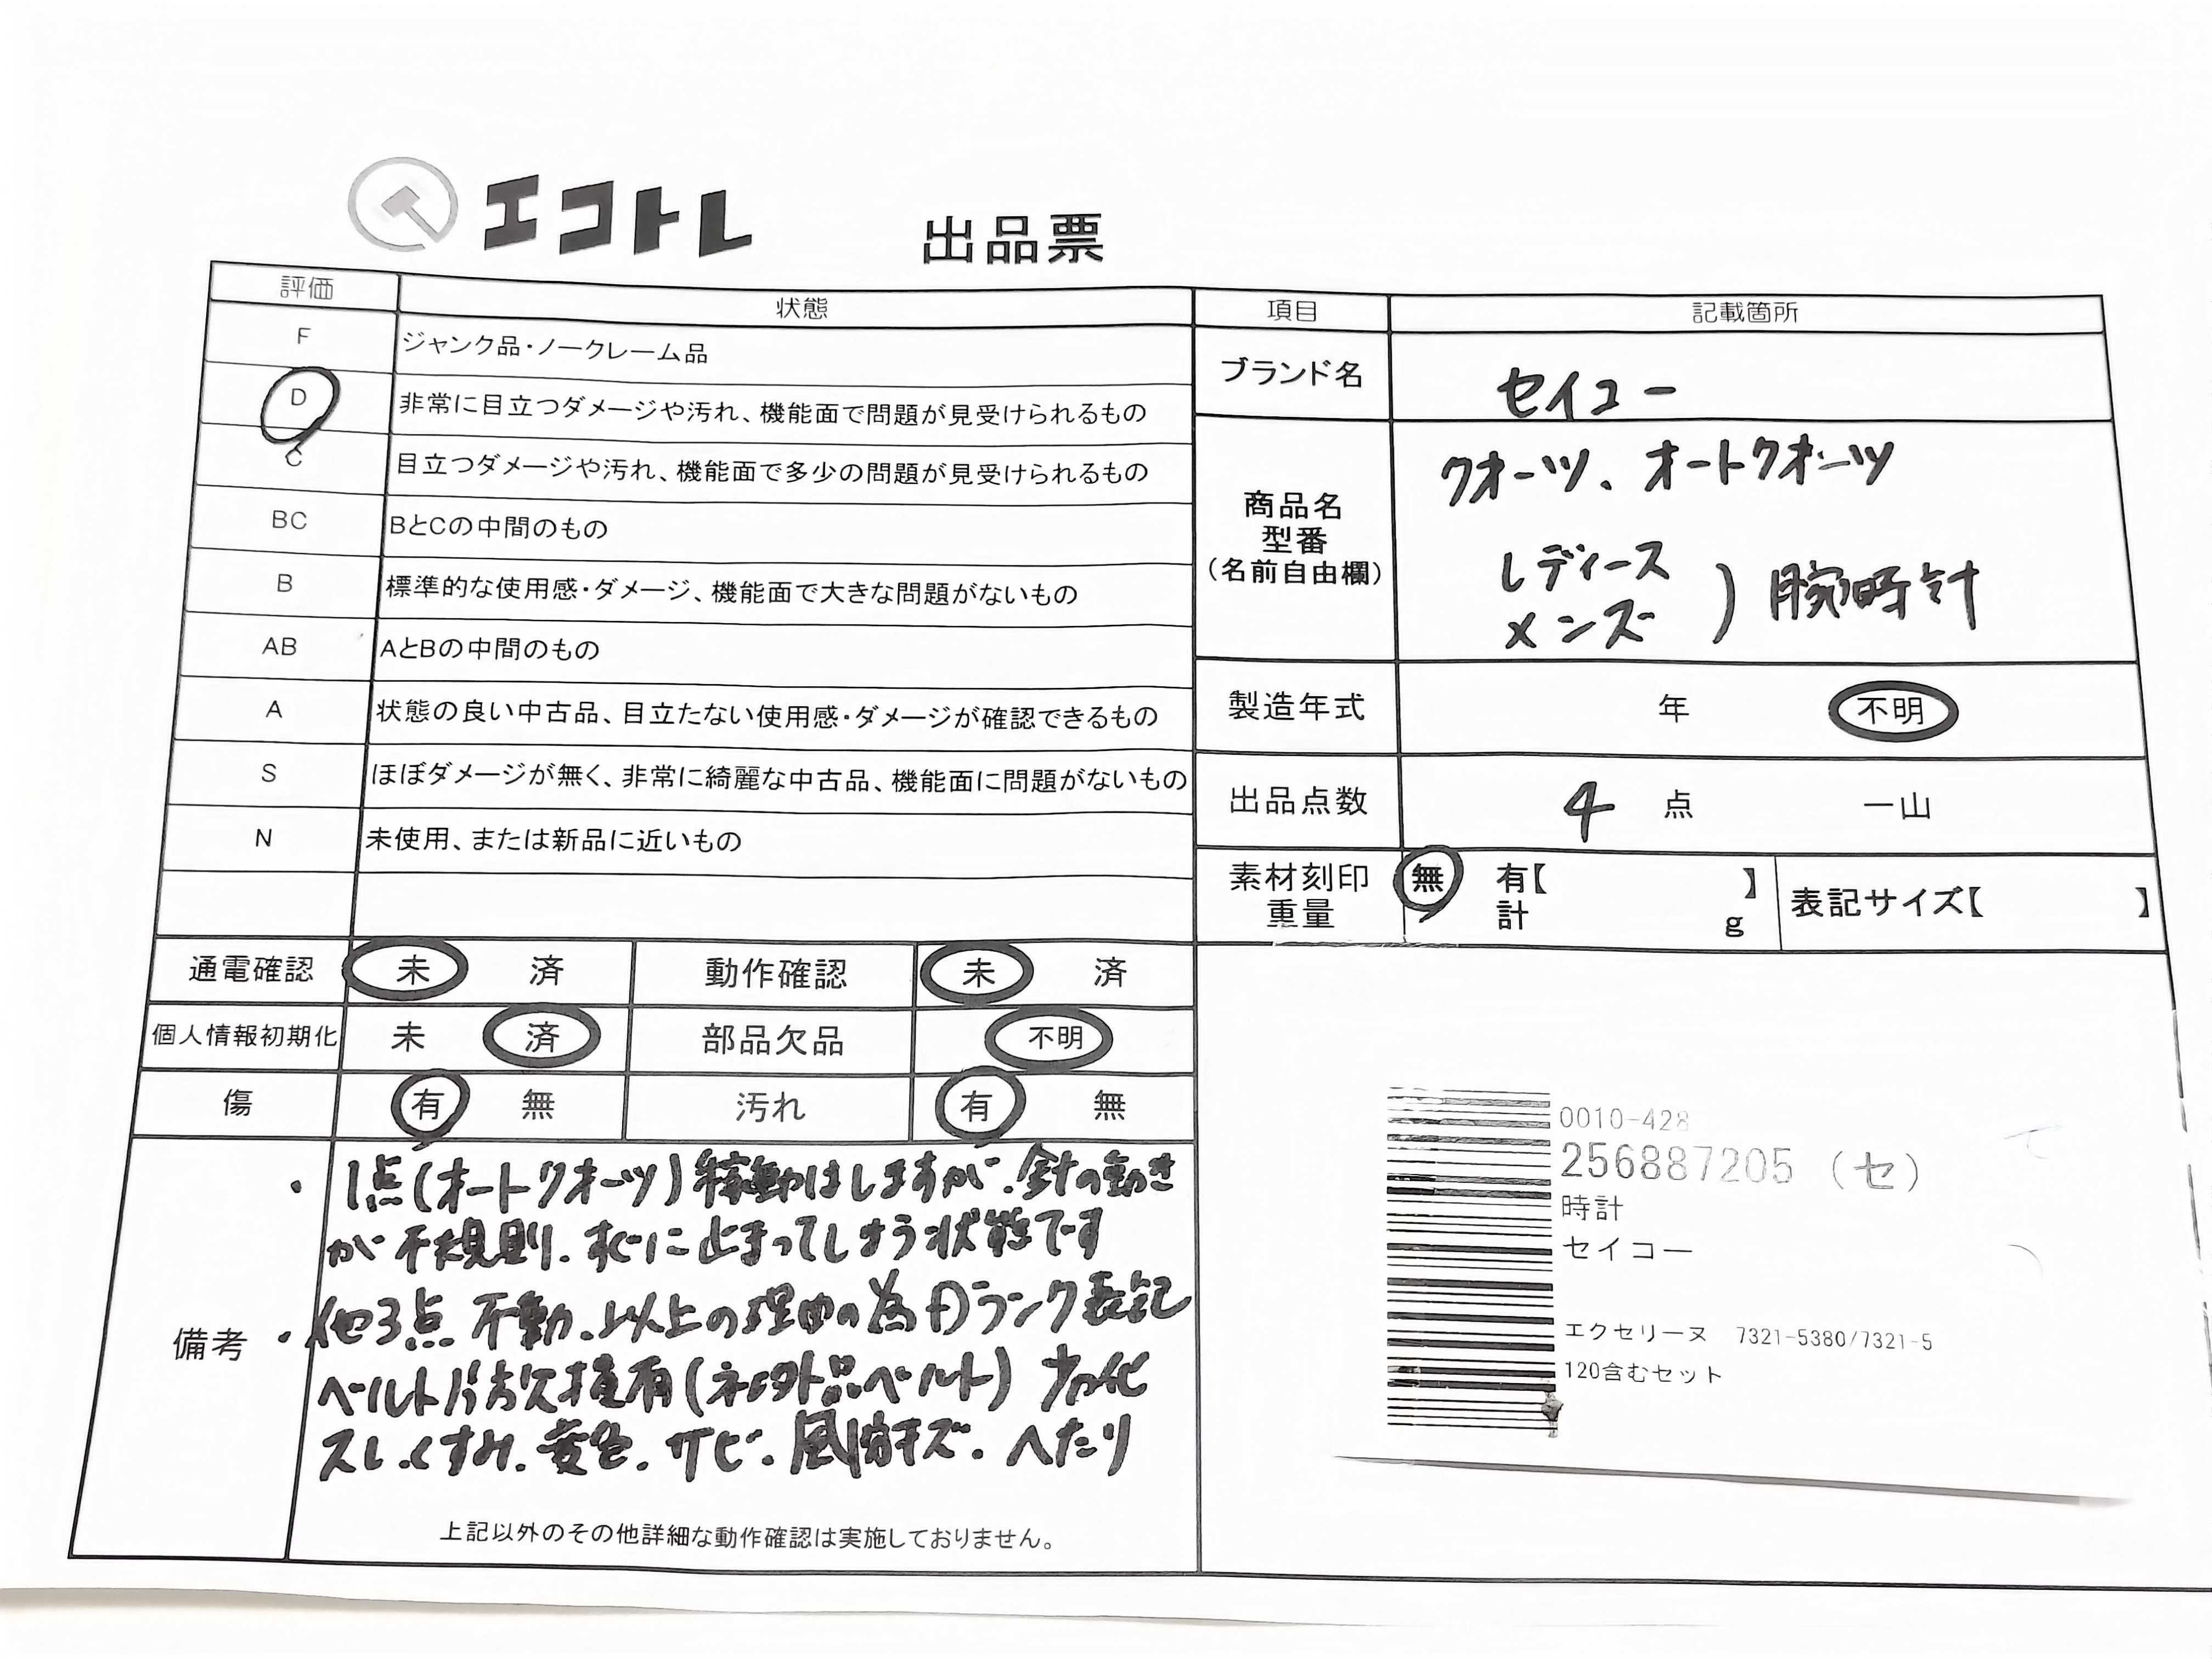 エコトレ 出品票
評価 状態
F ジャンク品・ノークレーム品
D 非常に目立つダメージや汚れ、機能面で問題が見受けられるもの
C 目立つダメージや汚れ、機能面で多少の問題が見受けられるもの
BC BとCの中間のもの
B 標準的な使用感・ダメージ、機能面で大きな問題がないもの
AB AとBの中間のもの
A 状態の良い中古品、目立たない使用感・ダメージが確認できるもの
S ほぼダメージが無く、非常に綺麗な中古品、機能面に問題がないもの
N 未使用、または新品に近いもの
項目 記載箇所
ブランド名 セイコー
商品名
型番
(名前自由欄)
クオーツ、オートクオーツ
レディース
メンズ ) 腕時計
製造年式 年 不明
出品点数 4 点 一山
素材刻印 無 有【 】
重量 計 g
表記サイズ【 】
通電確認 未 済 動作確認 未 済
個人情報初期化 未 済 部品欠品 不明
傷 有 無 汚れ 有 無
備考
・1点(オートクオーツ)稼動はしますが、針の動き
が不規則、すぐに止まってしまう状態です
・他3点 不動、以上の理由の為Dランク表記
ベルト片方欠損有(社外品ベルト) 劣化
スレ、くすみ、変色、サビ、風防キズ、へたり
上記以外のその他詳細な動作確認は実施しておりません。
0010-428
256887205 (セ)
時計
セイコー
エクセリーヌ 7321-5380/7321-5
120含むセット